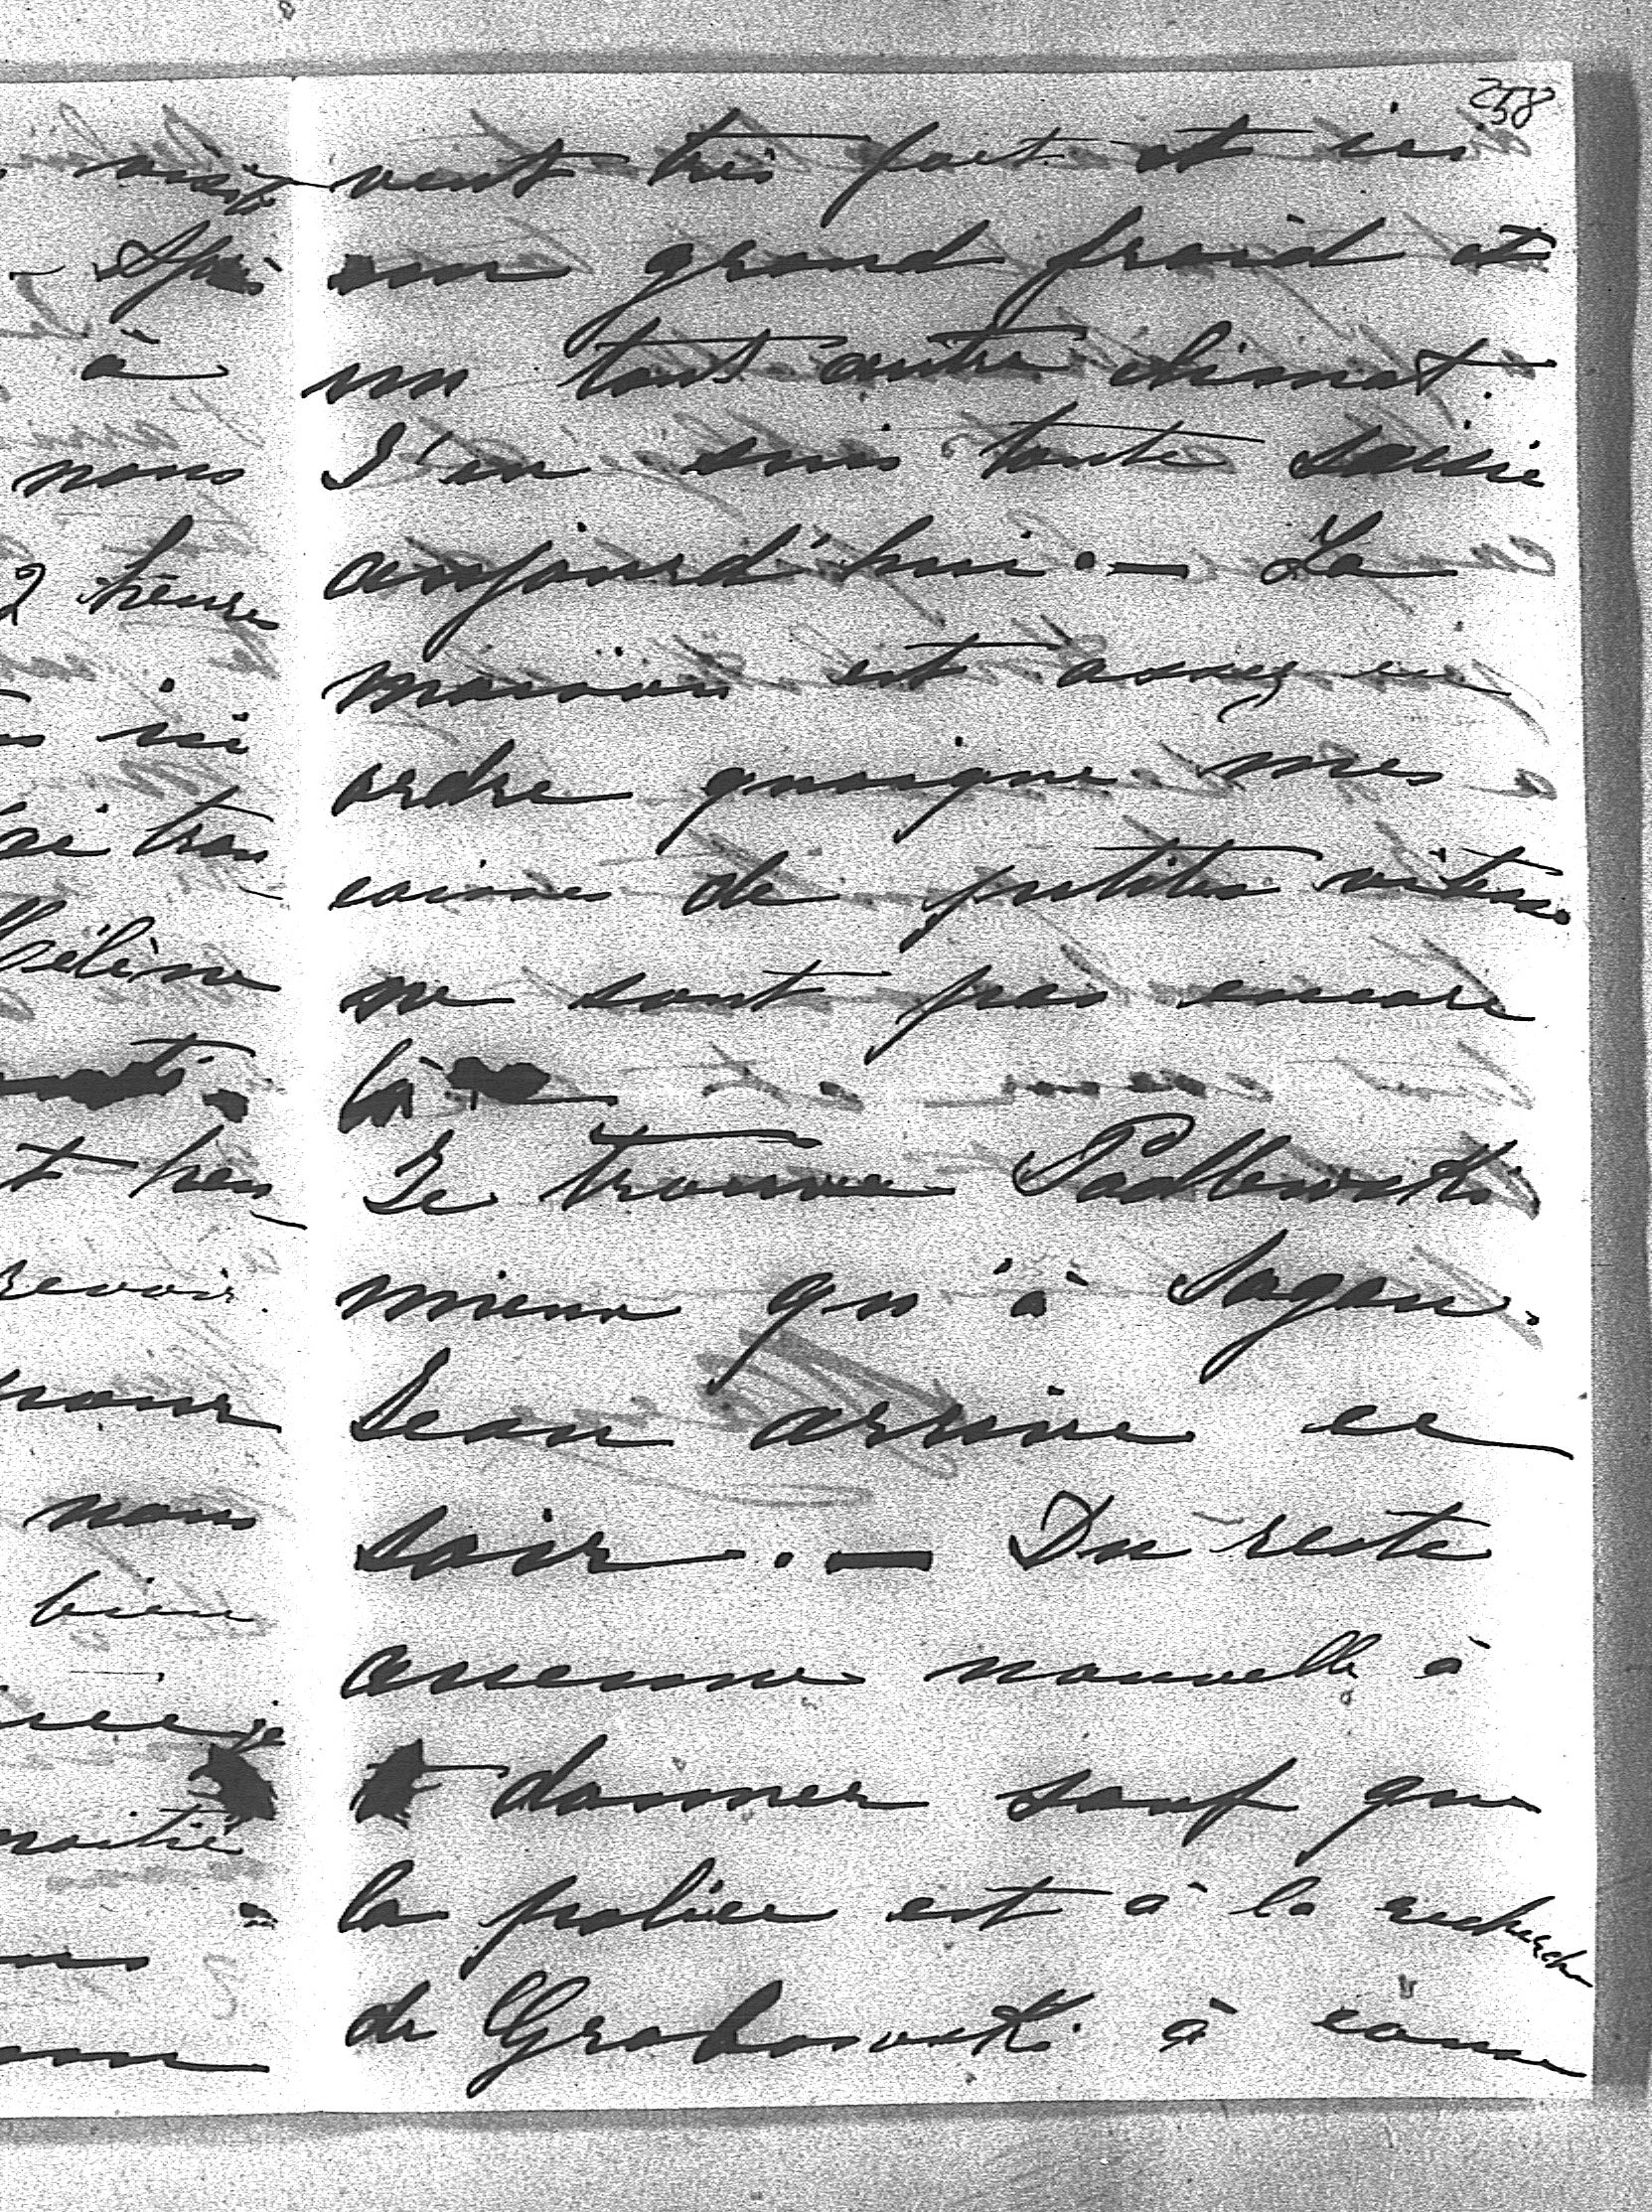 258
vent très fort et ici
un grand froid et
un tout autre climat.
J'en suis toute saisie
aujourd'hui. — La
maison est assez en
ordre quoique mes
caisses de petites vitesses
ne sont pas encore
là
Je trouve Padlewski
mieux qu'à Sagan.
Jean arrive ce
soir. — Du reste
aucune nouvelle à
donner sauf que
la police est à la recherche
de Grabowski à cause
Après
à
nous
2 heures
ici
ai trou
Hélène
t heu
revoir
pour
nous
bien
moitié